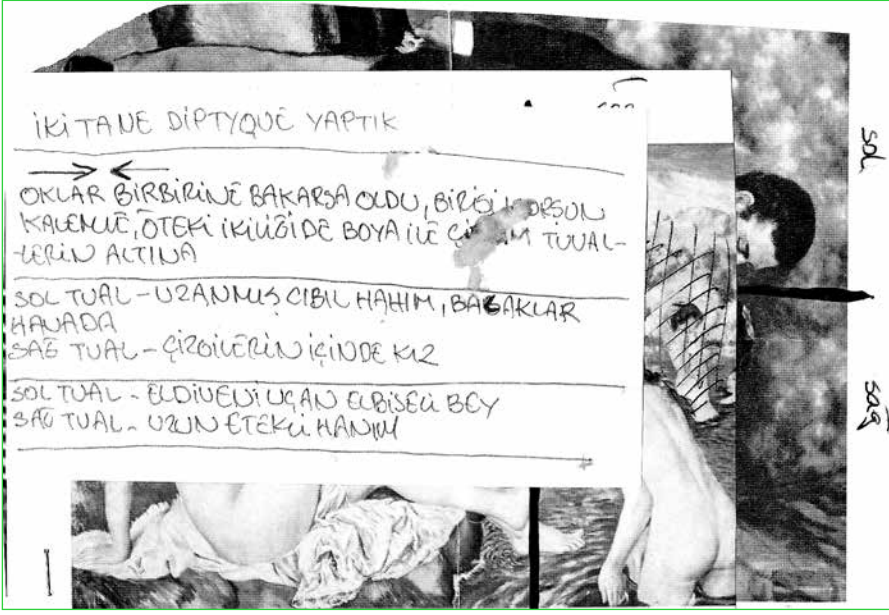 İKİ TANE DIPTYQUE YAPTIK
OKLAR BİRBİRİNE BAKARSA OLDU, BİRİSİ KURŞUN
KALEMLE, ÖTEKİ İKİLİĞİDE BOYA İLE TUVAL-
-LERİN ALTINA
SOL TUAL - UZANMIŞ CIBIL HANIM, BACAKLAR
HAVADA
SAĞ TUAL - ÇİZGİLERİN İÇİNDE KIZ
SOL TUAL - ELDİVENİ UÇAN ELBİSELİ BEY
SAĞ TUAL - UZUN ETEKLİ HANIM
sol
sağ